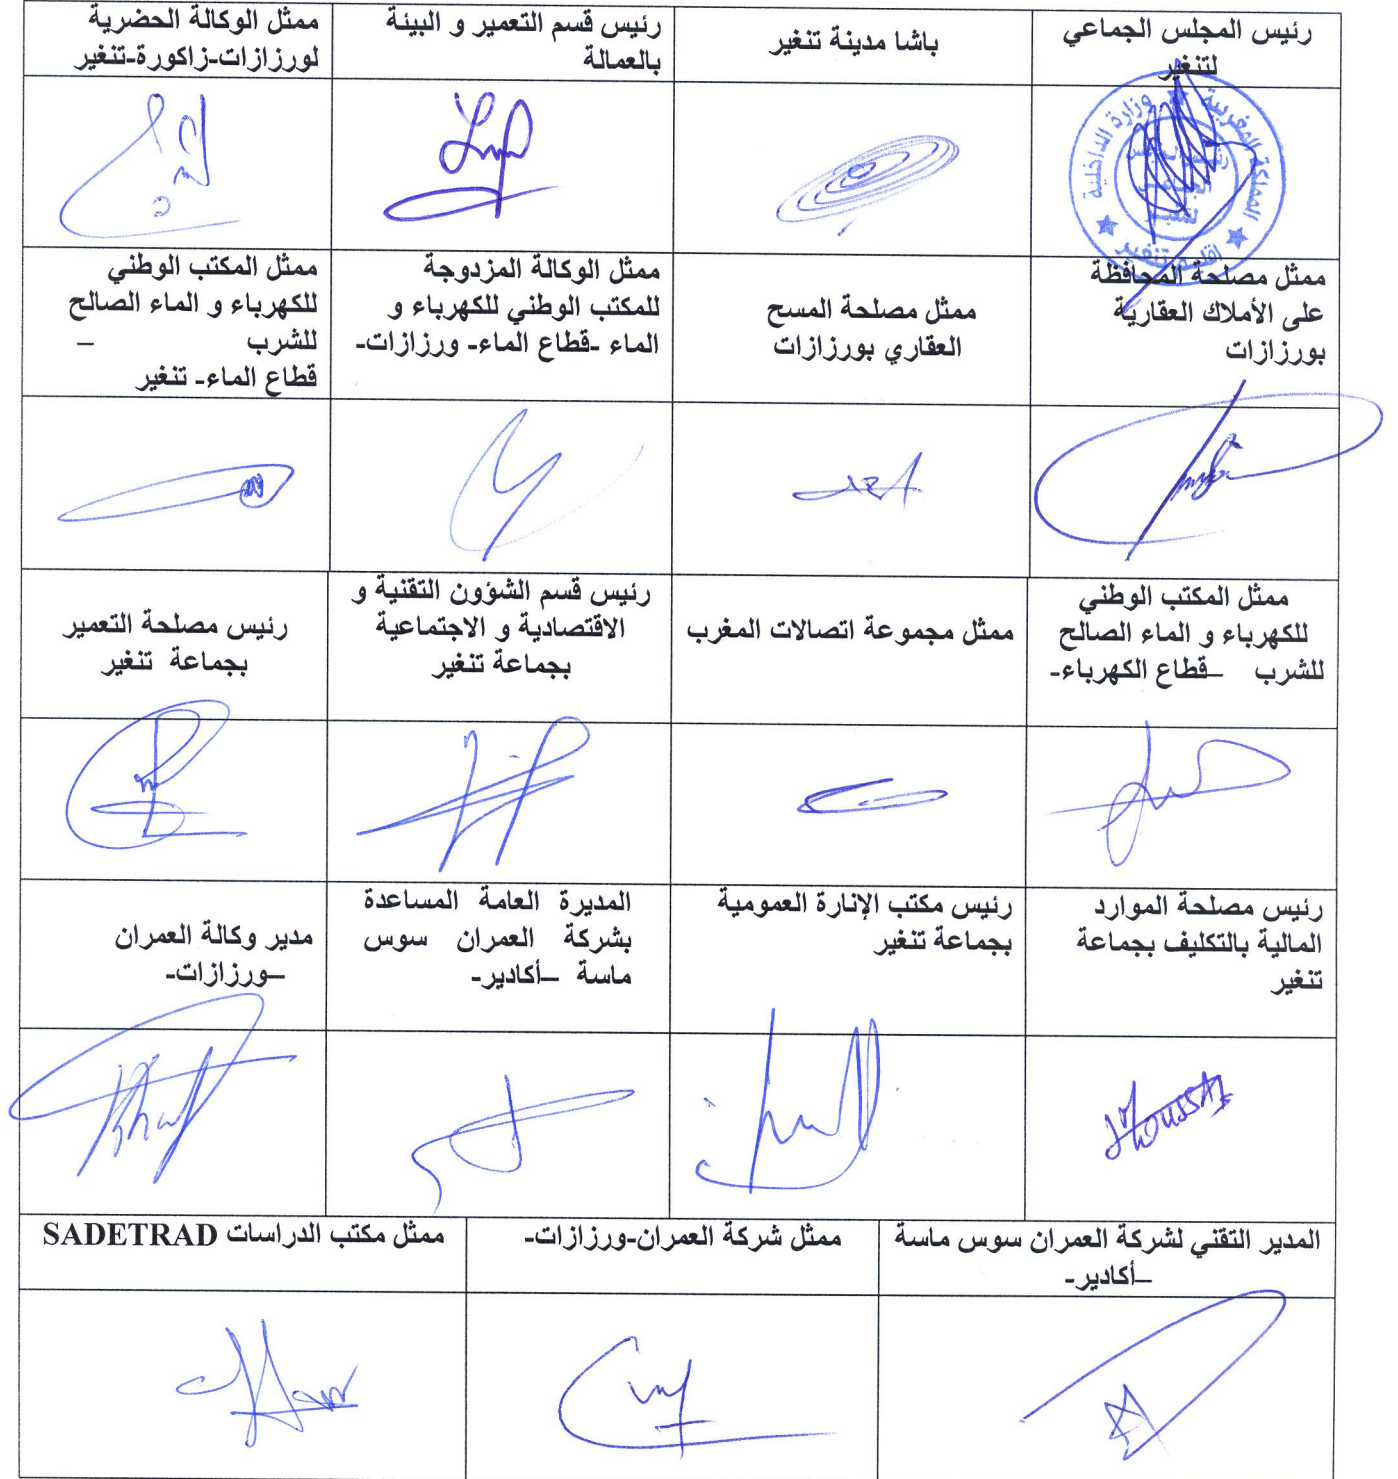 رئيس المجلس الجماعي
لتنغير
باشا مدينة تنغير
رئيس قسم التعمير و البيئة
بالعمالة
ممثل الوكالة الحضرية
لورزازات-زاكورة-تنغير
المملكة المغربية
وزارة الداخلية
اقليم تنغير
ممثل مصلحة المحافظة
على الأملاك العقارية
بورزازات
ممثل مصلحة المسح
العقاري بورزازات
ممثل الوكالة المزدوجة
للمكتب الوطني للكهرباء و
الماء -قطاع الماء- ورزازات-
ممثل المكتب الوطني
للكهرباء و الماء الصالح
للشرب –
قطاع الماء- تنغير
ممثل المكتب الوطني
للكهرباء و الماء الصالح
للشرب –قطاع الكهرباء-
ممثل مجموعة اتصالات المغرب
رئيس قسم الشؤون التقنية و
الاقتصادية و الاجتماعية
بجماعة تنغير
رئيس مصلحة التعمير
بجماعة تنغير
رئيس مصلحة الموارد
المالية بالتكليف بجماعة
تنغير
رئيس مكتب الإنارة العمومية
بجماعة تنغير
المديرة العامة المساعدة
بشركة العمران سوس
ماسة –أكادير-
مدير وكالة العمران
–ورزازات-
المدير التقني لشركة العمران سوس ماسة
–أكادير-
ممثل شركة العمران-ورزازات-
ممثل مكتب الدراسات SADETRAD